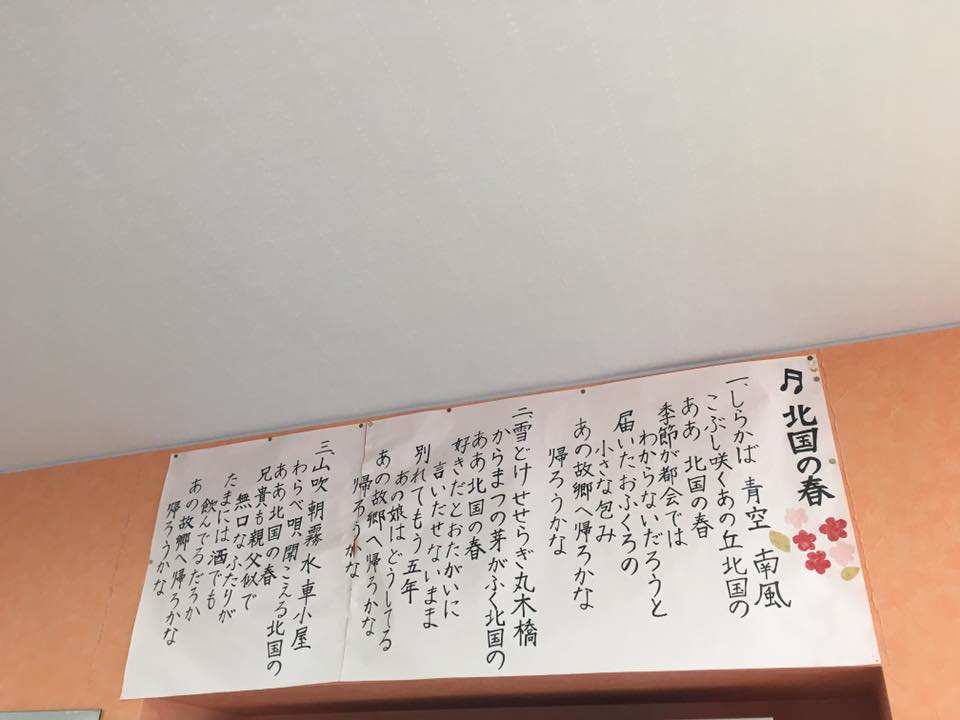 ♬ 北国の春
一、しらかば 青空 南風
こぶし咲くあの丘北国の
ああ 北国の春
季節が都会では
わからないだろうと
届いたおふくろの
小さな包み
あの故郷へ帰ろかな
帰ろうかな
二、雪どけ せせらぎ 丸木橋
からまつの芽がふく北国の
ああ北国の春
好きだとおたがいに
言いたせないまま
別れてもう五年
あの娘はどうしてる
あの故郷へ帰ろかな
帰ろうかな
三、山吹 朝霧 水車小屋
わらべ唄聞こえる北国の
ああ北国の春
兄貴も親父似で
無口なふたりが
たまには酒でも
飲んでるだろか
あの故郷へ帰ろかな
帰ろうかな